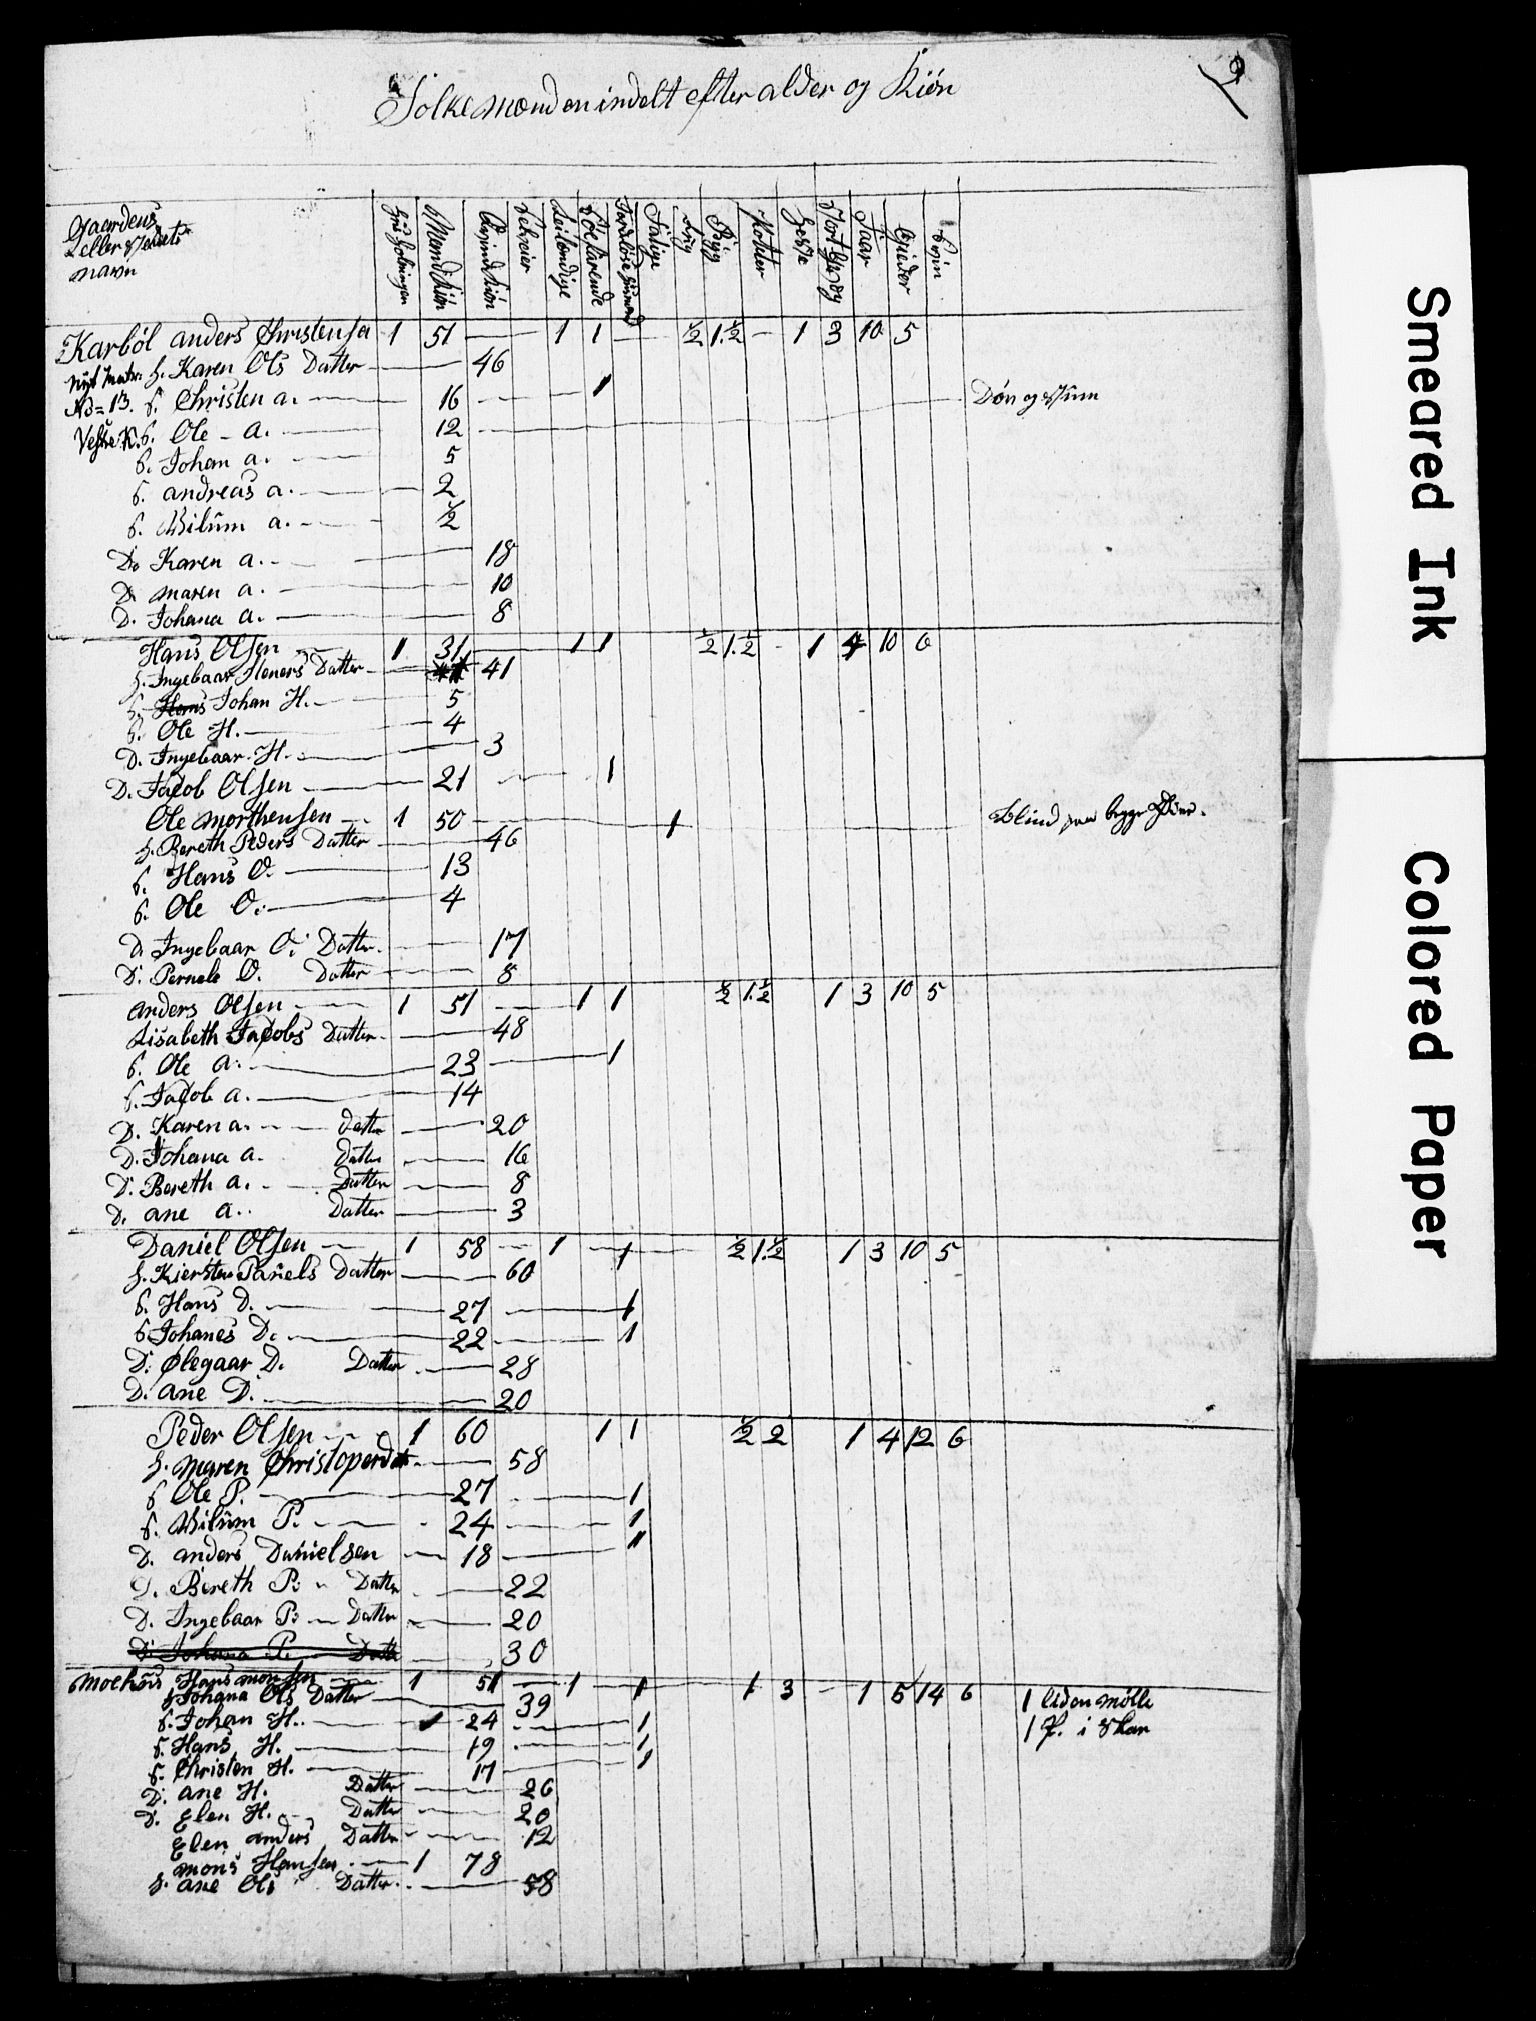 9
Folkemænden indelt efter alder og Kiön
Gaardens
eller stedets
navn
Huusholdninger Mandkiön Qvindekiön Selveier Leilændige Jordløse Huusmænd Byg Heste Faar Gieder Svin
Karböl anders Christensa 1 51 — 1 1 — ½ 1.½ — 1 3 10 5
Nyt Matr. H. Karen Ols Datter — 46
No = 13. S. Christen a. — 16 — 1 — Döv og Stum
Vestre K. S. Ole - a. — 12
S. Johan a. — 5
S. andreas a. — 2
S. Wilüm a. — ½
D. Karen a. — 18
D. maren a. — 10
D. Johana a. — 8
Hans Olsen — 1 31 — 1 1 ½ 1.½ - 1 4 10 6
H. Ingebaar Steners Datter — 41
S. Hans Johan H. — 5
S. Ole H. — 4
D. Ingebaar H. — 3
D. Jacob Olsen — 21 — 1
Ole Morthensen — 1 50 — 1 — Blind paa begge Öine.
H. Bereth Peders Datter — 46
S. Hans O. — 13
S. Ole O. — 4
D. Ingebaar O. Datter — 17
D. Pernele O. Datter — 8
anders Olsen — 1 51 — 1 1 ½ 1.½ 1 3 10 5
Lisabeth Jacobs Datter — 48
S. Ole a. — 23 — 1
S. Jacob a. — 14
D. Karen a. — datter — 20
D. Johana a. datter — 16
D. Bereth a. — Datter — 8
D. ane a. Datter — 3
Daniel Olsen — 1 58 — 1 — 1 — ½ 1.½ 1 3 10 5
H. Kiersten Panels Datter — 60
S. Hans D. — 27 — 1
S. Johanes D. — 22 — 1
D. Ølegaar D. Datter — 28
D. ane D. — 20
Peder Olsen — 1 60 1 1 ½ 2 1 4 12 6
H. maren Christoperdat — 58
S. Ole P. — 27 — 1
S. Wilüm P. — 24 — 1
D. anders Danielsen — 18 — 1
D. Bereth P. — Datter — 22
D. Ingebaar P. — Datter — 20
D. Johana P. — Datter — 30
Hans monsen — 1 51 — 1 — 1 1 3 - 1 5 14 6 1 liden mölle
H. Johana Ols Datter — 39
S. Johan H. — 1 24 — 1 1 P. i Skar
S. Hans H. — 19 — 1
S. Christen H. — 17 — 1
D. ane H. Datter — 26
D. Elen H. — Datter — 20
Elen anders Datter — 12
mons Hansen — 1 78
H. ane Ols Datter — 58
Smeared Ink
Colored Paper